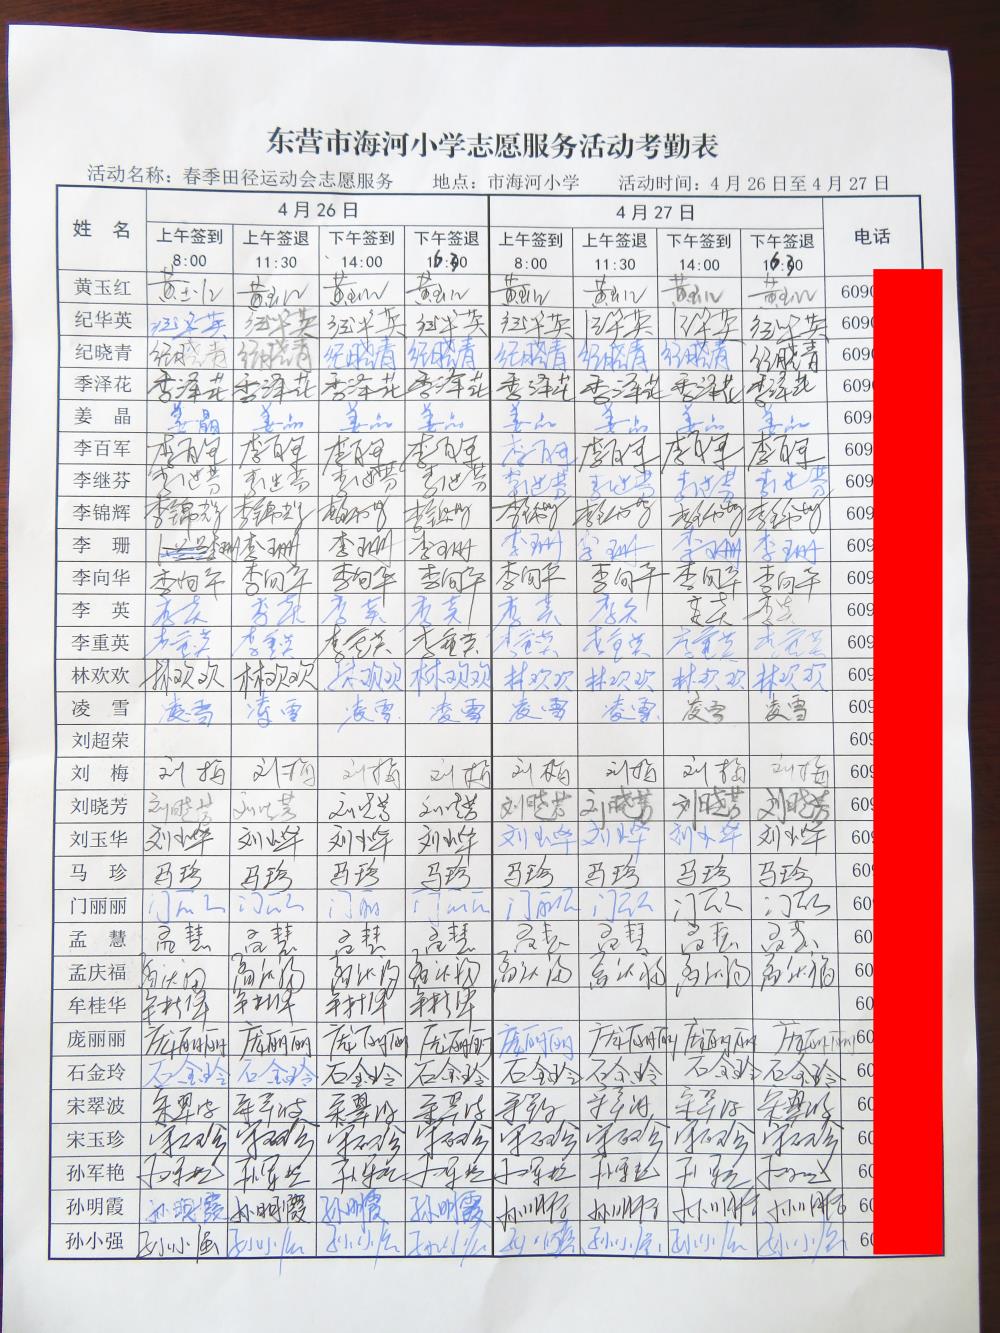 东营市海河小学志愿服务活动考勤表
活动名称：春季田径运动会志愿服务 地点：市海河小学 活动时间：4月26日至4月27日
姓 名 4月26日 4月27日 电话
上午签到 上午签退 下午签到 下午签退 上午签到 上午签退 下午签到 下午签退
8:00 11:30 14:00 8:00 11:30 14:00
黄玉红 黄玉红 黄玉红 黄玉红 黄玉红 黄玉红 黄玉红 黄玉红 黄玉红 609
纪华英 纪华英 纪华英 纪华英 纪华英 纪华英 纪华英 纪华英 纪华英 609
纪晓青 纪晓青 纪晓青 纪晓青 纪晓青 纪晓青 纪晓青 纪晓青 纪晓青 609
季泽花 季泽花 季泽花 季泽花 季泽花 季泽花 季泽花 季泽花 季泽花 609
姜 晶 姜晶 姜晶 姜晶 姜晶 姜晶 姜晶 姜晶 姜晶 609
李百军 李百军 李百军 李百军 李百军 李百军 李百军 李百军 李百军 609
李继芬 李继芬 李继芬 李继芬 李继芬 李继芬 李继芬 李继芬 李继芬 609
李锦辉 李锦辉 李锦辉 李锦辉 李锦辉 李锦辉 李锦辉 李锦辉 李锦辉 609
李 珊 李珊 李珊 李珊 李珊 李珊 李珊 李珊 李珊 609
李向华 李向华 李向华 李向华 李向华 李向华 李向华 李向华 李向华 609
李 英 李英 李英 李英 李英 李英 李英 李英 李英 609
李重英 李重英 李重英 李重英 李重英 李重英 李重英 李重英 李重英 609
林欢欢 林欢欢 林欢欢 林欢欢 林欢欢 林欢欢 林欢欢 林欢欢 林欢欢 609
凌 雪 凌雪 凌雪 凌雪 凌雪 凌雪 凌雪 凌雪 凌雪 609
刘超荣 609
刘 梅 刘梅 刘梅 刘梅 刘梅 刘梅 刘梅 刘梅 刘梅 609
刘晓芳 刘晓芳 刘晓芳 刘晓芳 刘晓芳 刘晓芳 刘晓芳 刘晓芳 刘晓芳 609
刘玉华 刘玉华 刘玉华 刘玉华 刘玉华 刘玉华 刘玉华 刘玉华 刘玉华 609
马 珍 马珍 马珍 马珍 马珍 马珍 马珍 马珍 马珍 609
门丽丽 门丽丽 门丽丽 门丽 门丽丽 门丽丽 门丽丽 门丽丽 门丽丽 609
孟 慧 孟慧 孟慧 孟慧 孟慧 孟慧 孟慧 孟慧 孟慧 60
孟庆福 孟庆福 孟庆福 孟庆福 孟庆福 孟庆福 孟庆福 孟庆福 孟庆福 60
牟桂华 牟桂华 牟桂华 牟桂华 牟桂华 60
庞丽丽 庞丽丽 庞丽丽 庞丽丽 庞丽丽 庞丽丽 庞丽丽 庞丽丽 庞丽丽 60
石金玲 石金玲 石金玲 石金玲 石金玲 石金玲 石金玲 石金玲 石金玲 60
宋翠波 宋翠波 宋翠波 宋翠波 宋翠波 宋翠波 宋翠波 宋翠波 宋翠波 60
宋玉珍 宋玉珍 宋玉珍 宋玉珍 宋玉珍 宋玉珍 宋玉珍 宋玉珍 宋玉珍 60
孙军艳 孙军艳 孙军艳 孙军艳 孙军艳 孙军艳 孙军艳 孙军艳 孙军艳 60
孙明霞 孙明霞 孙明霞 孙明霞 孙明霞 孙明霞 孙明霞 孙明霞 孙明霞 60
孙小强 孙小强 孙小强 孙小强 孙小强 孙小强 孙小强 孙小强 孙小强 60